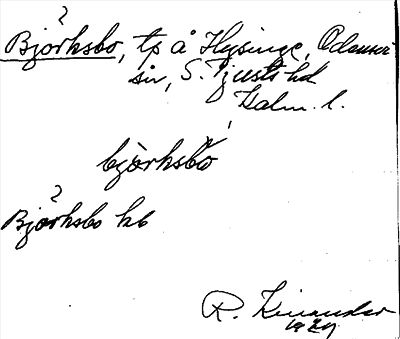 ?
Björksbo, tp å Hysinge, Odensvi
sn, S. Tjusts hd
Kalm. l.
björksbo
?
Björksbo hb
R. Kinander